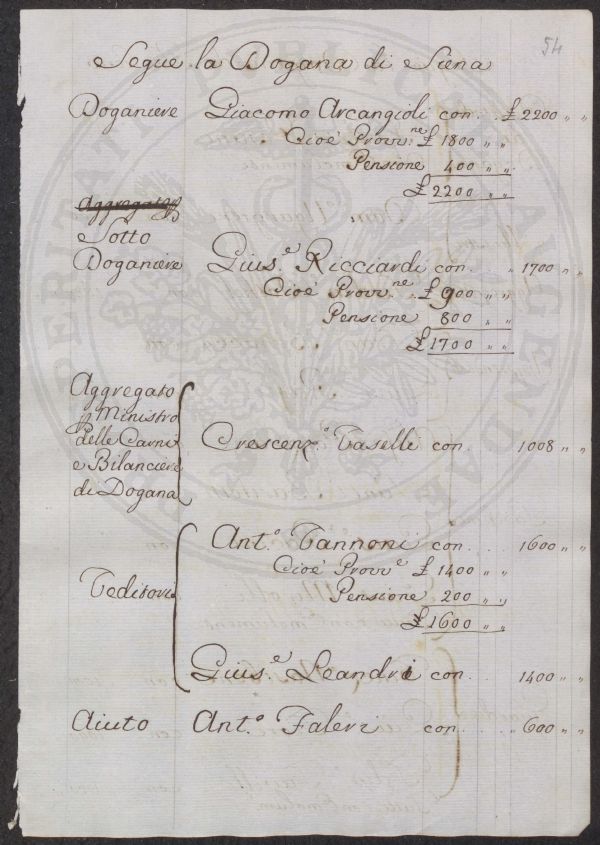 54
Segue la Dogana di Siena
Doganiere Giacomo Arcangioli con . . £ 2200 " "
Cioè Provv.ne £ 1800 " "
Pensione 400 " "
£ 2200 " "
Aggregato
Sotto
Doganiere Gius.e Ricciardi con . " 1700 " "
Cioè Provv.ne £ 900 " "
Pensione 800 " "
£ 1700 " "
Aggregato
p Ministro
delle Carni
e Bilanciere
di Dogana
Crescenz.o Taselli con . 1008 " "
Teditori
Ant.o Tannoni con . . . 1600 " "
Cioè Provv.e £ 1400 " "
Pensione 200 " "
£ 1600 " "
Gius.e Leandri con . . . 1400 " "
Aiuto Ant.o Faleri con . . . " 600 " "